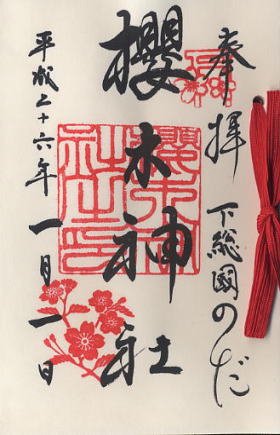 奉拝 下総國のだ
櫻木神社
平成二十六年 一月一日
櫻木神社之印